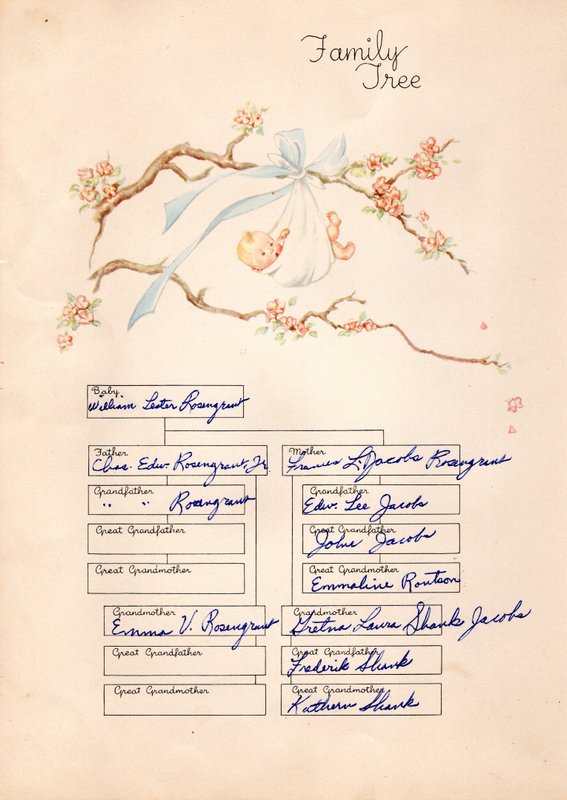 Family
Tree
Baby
William Lester Rosengrant
Father
Chas. Edw. Rosengrant, Jr.
Mother
Frances L. Jacobs Rosengrant
Grandfather
" " Rosengrant
Grandfather
Edw. Lee Jacobs
Great Grandfather
Great Grandfather
John Jacobs
Great Grandmother
Great Grandmother
Emmaline Routson
Grandmother
Emma V. Rosengrant
Grandmother
Gretna Laura Shank Jacobs
Great Grandfather
Great Grandfather
Frederik Shank
Great Grandmother
Great Grandmother
Kathern Shank